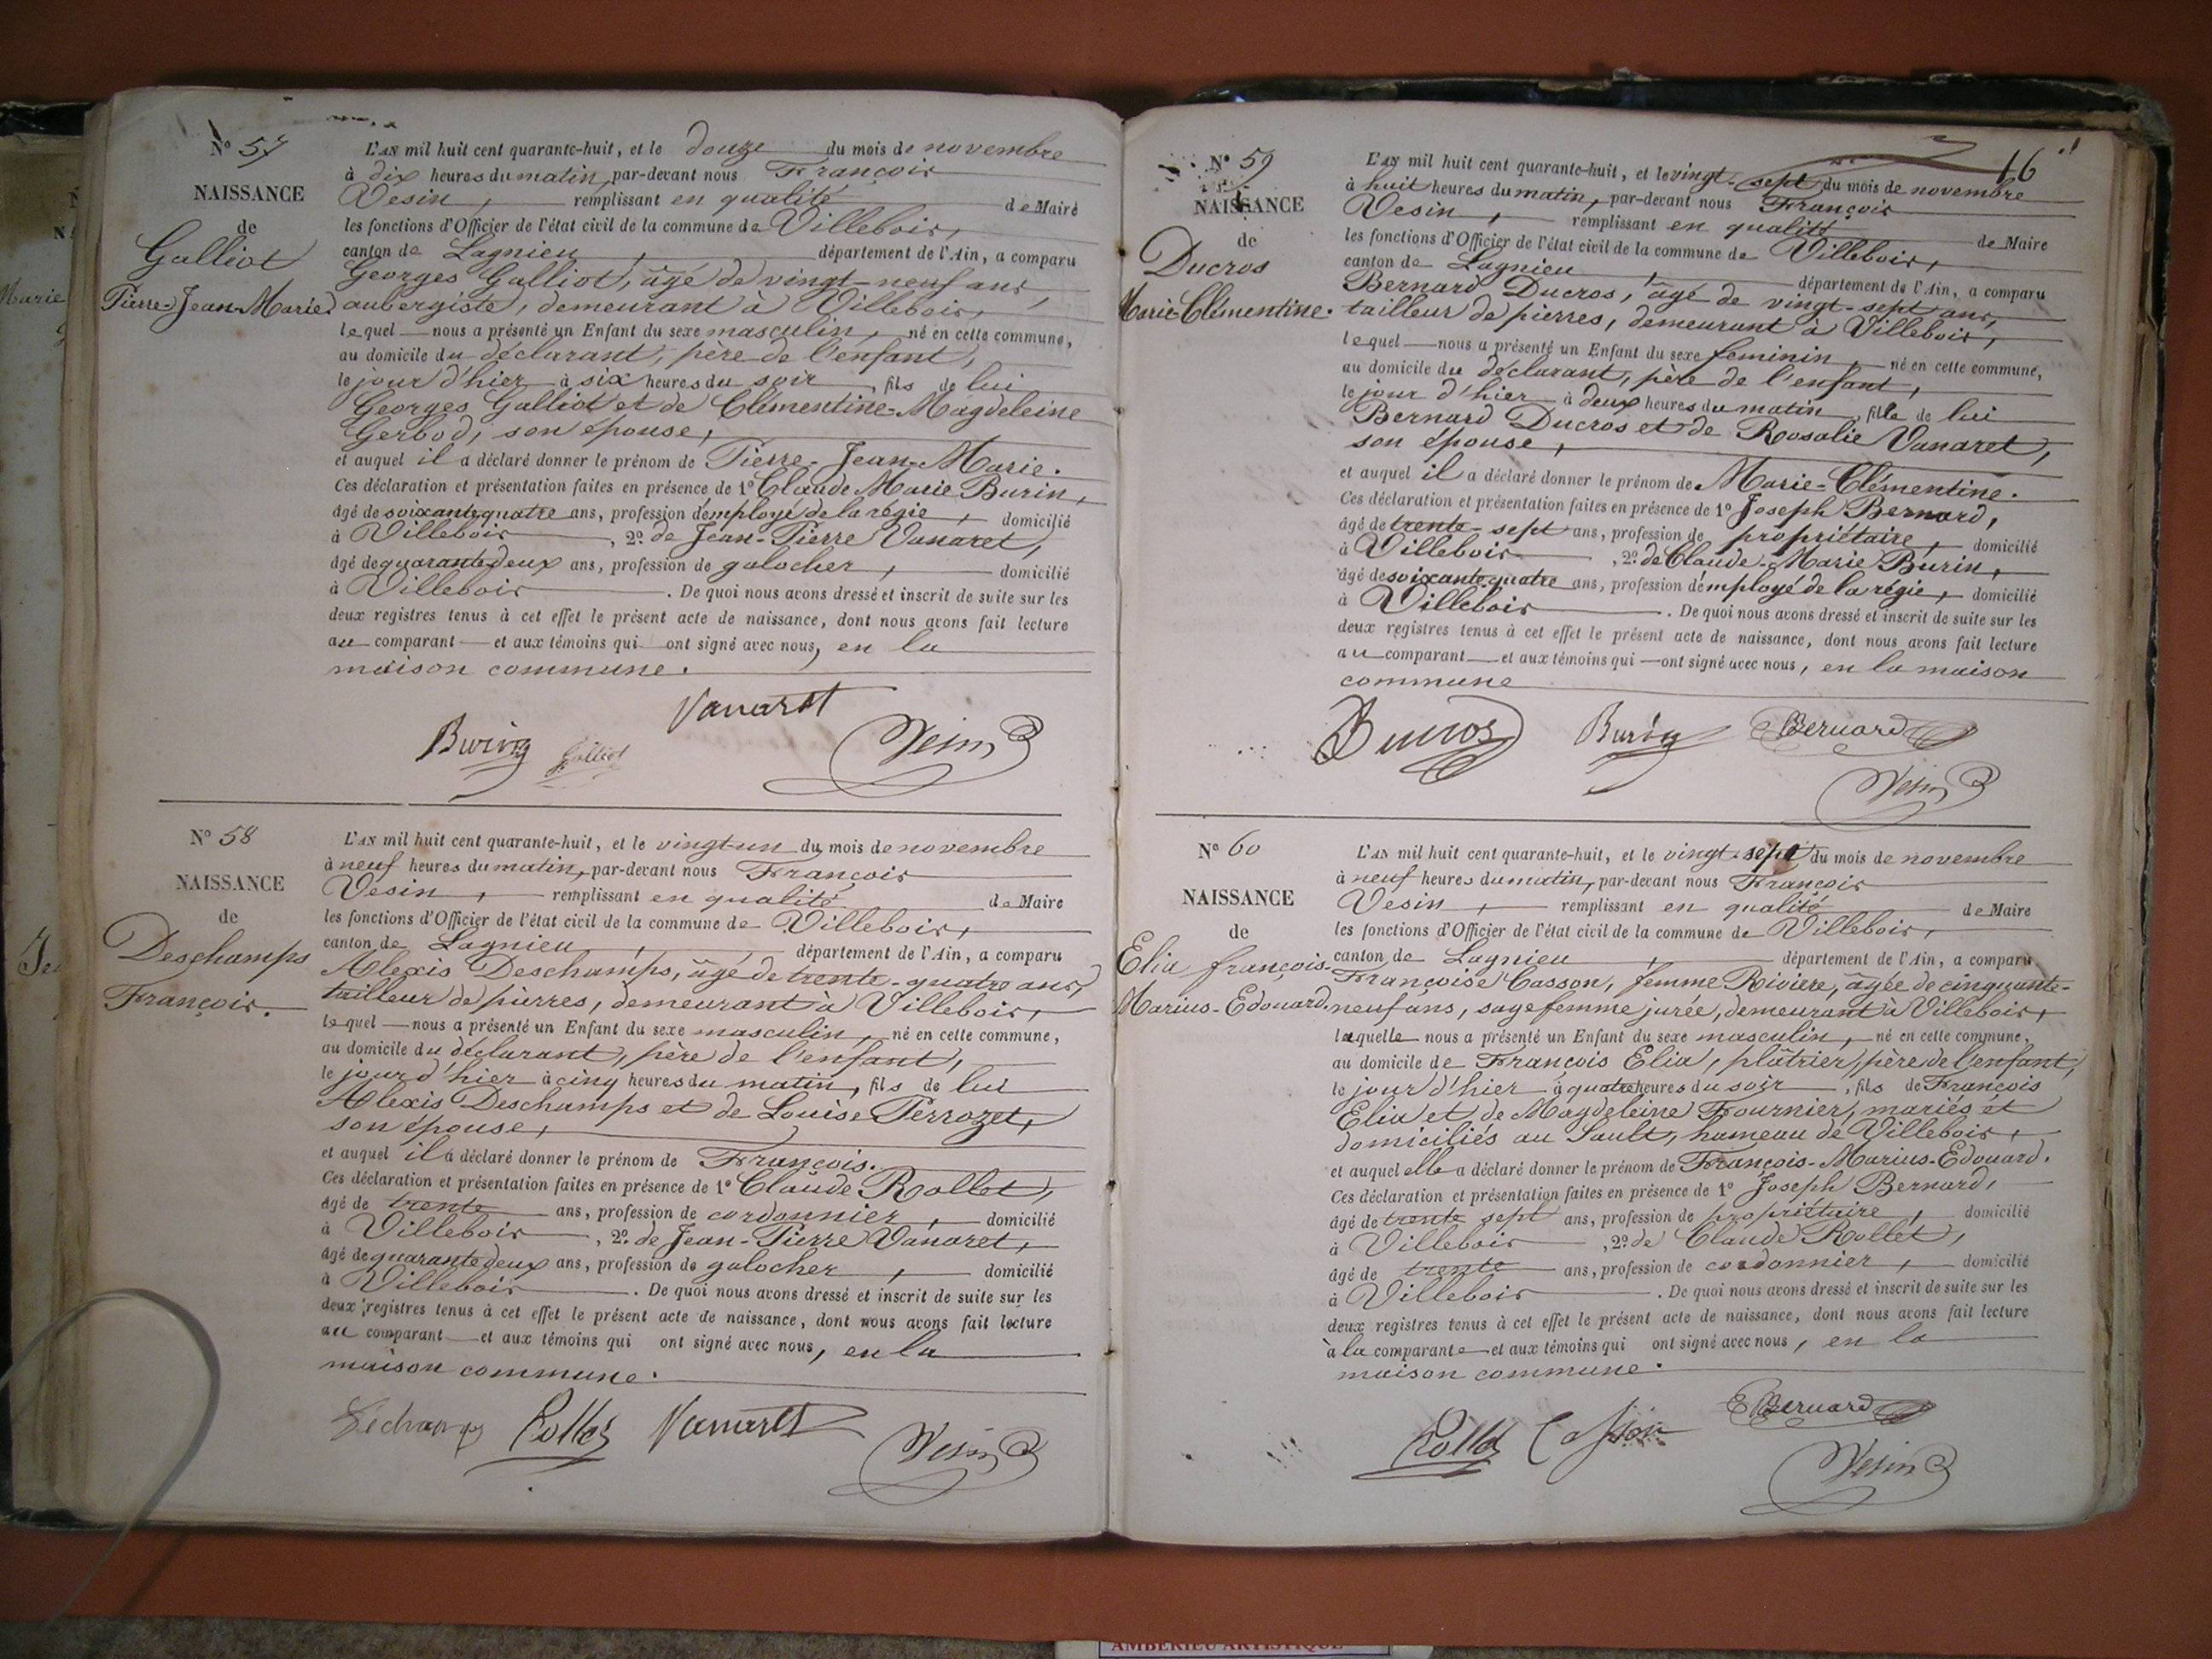 N° 57
NAISSANCE
de
Galliot
Pierre-Jean-Marie.
L'AN mil huit cent quarante-huit, et le douze du mois de novembre
à dix heures du matin, par-devant nous François
Vesin, remplissant en qualité de Maire
les fonctions d'Officier de l'état civil de la commune de Villebois,
canton de Lagnieu, département de l'Ain, a comparu
Georges Galliot, âgé de vingt-neuf ans,
aubergiste, demeurant à Villebois,
lequel nous a présenté un Enfant du sexe masculin, né en cette commune,
au domicile du déclarant, père de l'enfant,
le jour d'hier à six heures du soir, fils de lui
Georges Galliot et de Clémentine-Magdeleine
Gerbod, son épouse,
et auquel il a déclaré donner le prénom de Pierre-Jean-Marie.
Ces déclaration et présentation faites en présence de 1° Claude Marie Burin,
âgé de soixante quatre ans, profession d'employé de la régie, domicilié
à Villebois, 2° de Jean-Pierre Vanaret,
âgé de quarante deux ans, profession de galocher, domicilié
à Villebois. De quoi nous avons dressé et inscrit de suite sur les
deux registres tenus à cet effet le présent acte de naissance, dont nous avons fait lecture
au comparant et aux témoins qui ont signé avec nous, en la
maison commune.
Vanaret
Burin Galliot Vesin
N° 58
NAISSANCE
de
Deschamps
François.
L'AN mil huit cent quarante-huit, et le vingt-un du mois de novembre
à neuf heures du matin, par-devant nous François
Vesin, remplissant en qualité de Maire
les fonctions d'Officier de l'état civil de la commune de Villebois,
canton de Lagnieu, département de l'Ain, a comparu
Alexis Deschamps, âgé de trente-quatre ans,
tailleur de pierres, demeurant à Villebois,
lequel nous a présenté un Enfant du sexe masculin, né en cette commune,
au domicile du déclarant, père de l'enfant,
le jour d'hier à cinq heures du matin, fils de lui
Alexis Deschamps et de Louise Perrozet,
son épouse,
et auquel il a déclaré donner le prénom de François.
Ces déclaration et présentation faites en présence de 1° Claude Rollet,
âgé de trente ans, profession de cordonnier, domicilié
à Villebois, 2° de Jean-Pierre Vanaret,
âgé de quarante deux ans, profession de galocher, domicilié
à Villebois. De quoi nous avons dressé et inscrit de suite sur les
deux registres tenus à cet effet le présent acte de naissance, dont nous avons fait lecture
au comparant et aux témoins qui ont signé avec nous, en la
maison commune.
Rollet Vanaret Vesin
16
N° 59
NAISSANCE
de
Ducros
Marie-Clémentine.
L'AN mil huit cent quarante-huit, et le vingt-sept du mois de novembre
à huit heures du matin, par-devant nous François
Vesin, remplissant en qualité de Maire
les fonctions d'Officier de l'état civil de la commune de Villebois,
canton de Lagnieu, département de l'Ain, a comparu
Bernard Ducros, âgé de vingt-sept ans,
tailleur de pierres, demeurant à Villebois,
lequel nous a présenté un Enfant du sexe feminin, né en cette commune,
au domicile du déclarant, père de l'enfant,
le jour d'hier à deux heures du matin, fille de lui
Bernard Ducros et de Rosalie Vanaret,
son épouse,
et auquel il a déclaré donner le prénom de Marie-Clémentine.
Ces déclaration et présentation faites en présence de 1° Joseph Bernard,
âgé de trente-sept ans, profession de propriétaire, domicilié
à Villebois, 2° de Claude-Marie Burin,
âgé de soixante quatre ans, profession d'employé de la régie, domicilié
à Villebois. De quoi nous avons dressé et inscrit de suite sur les
deux registres tenus à cet effet le présent acte de naissance, dont nous avons fait lecture
au comparant et aux témoins qui ont signé avec nous, en la maison
commune
Ducros Burin Bernard
Vesin
N° 60
NAISSANCE
de
Elia françois-
Marius-Edouard.
L'AN mil huit cent quarante-huit, et le vingt-sept du mois de novembre
à neuf heures du matin, par-devant nous François
Vesin, remplissant en qualité de Maire
les fonctions d'Officier de l'état civil de la commune de Villebois,
canton de Lagnieu, département de l'Ain, a comparu
Françoise Casson, femme Riviere, âgée de cinquante-
neuf ans, sage femme jurée, demeurant à Villebois,
laquelle nous a présenté un Enfant du sexe masculin, né en cette commune,
au domicile de François Elia, plâtrier, père de l'enfant,
le jour d'hier à quatre heures du soir, fils de François
Elia et de Magdeleine Fournier, mariés et
domiciliés au Sault, hameau de Villebois,
et auquel elle a déclaré donner le prénom de François-Marius-Edouard.
Ces déclaration et présentation faites en présence de 1° Joseph Bernard,
âgé de trente sept ans, profession de propriétaire, domicilié
à Villebois, 2° de Claude Rollet,
âgé de trente ans, profession de cordonnier, domicilié
à Villebois. De quoi nous avons dressé et inscrit de suite sur les
deux registres tenus à cet effet le présent acte de naissance, dont nous avons fait lecture
à la comparante et aux témoins qui ont signé avec nous, en la
maison commune.
Rollet Casson Bernard
Vesin
AMBERIEU ARTISTIQUE